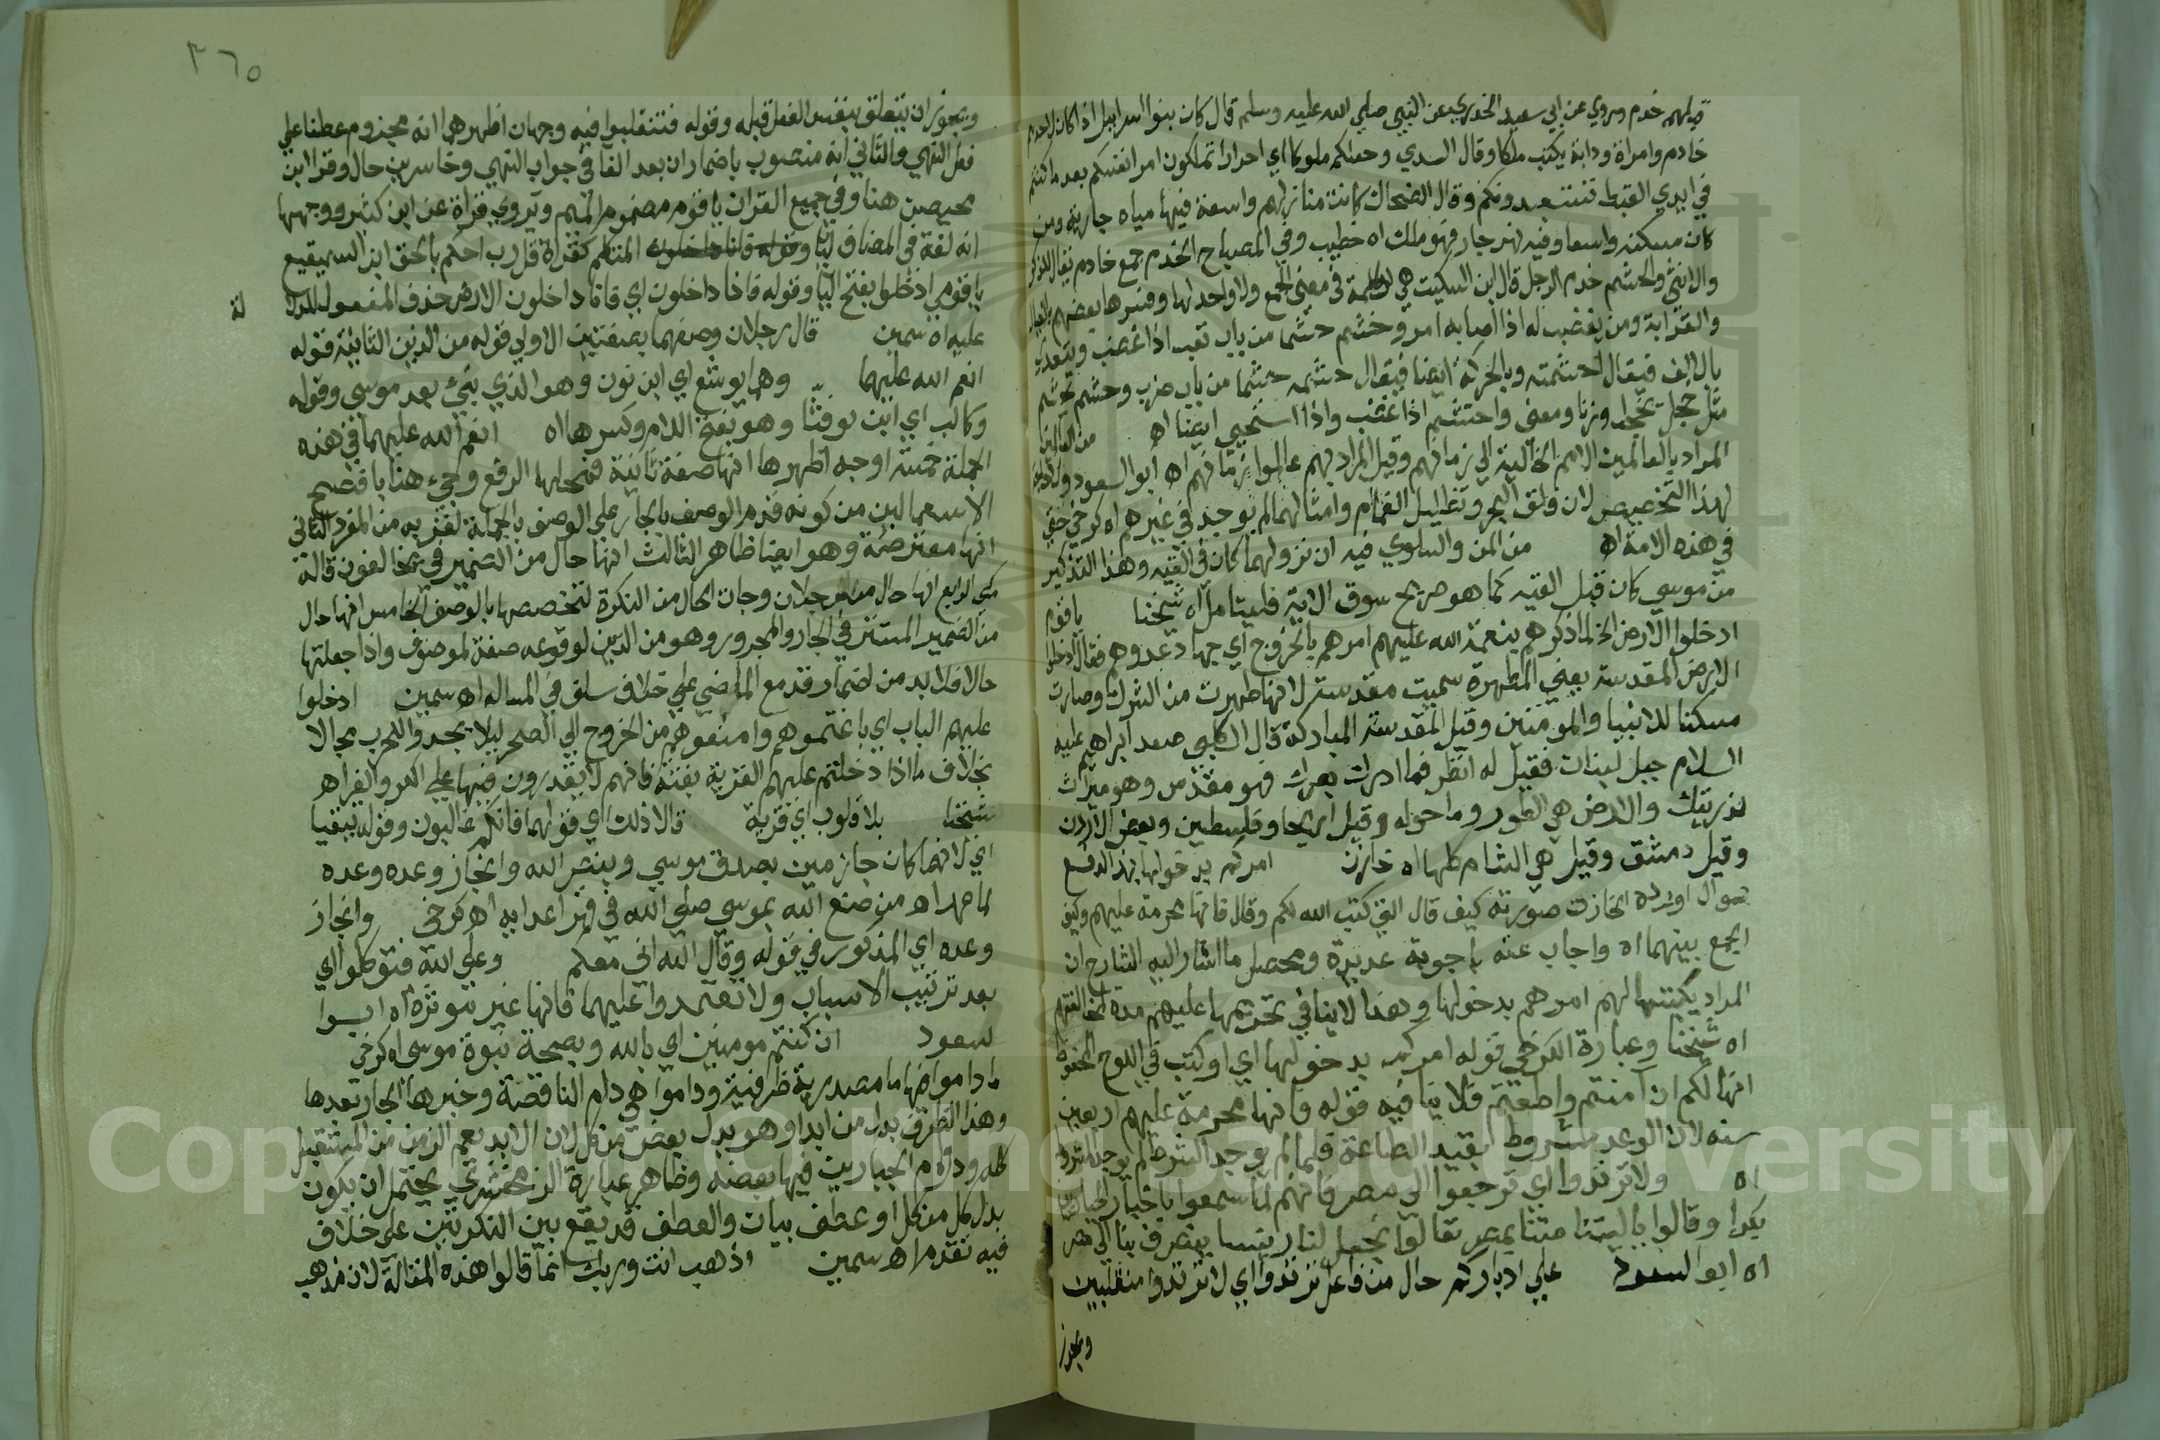 قبلهم خدم وروي عن ابي سعيد الخدري عن النبي صلي الله عليه وسلم قال كان بنوا اسرائيل اذا كان لاحدهم
خادم وامراة ودابة يكتب ملكا وقال السدي وجعلكم ملوكا اي احرارا تملكون امر انفسكم بعد ما كنتم
في ايدي القبط تستعبدونكم وقال الضحاك كانت منازلهم واسعة فيها مياه جارية ومن
كان مسكنه واسعا وفيه نهر جار فهو ملك اه خطيب وفي المصباح الخدم جمع خادم يقال للذكر
والانثي والحشم خدم الرجل قال ابن السكيت هي كلمة في معني الجمع ولا واحد لها وفسرها بعضهم بالعيال
والقرابة ومن يغضب له اذا اصابه امر وحشم حشما من باب تعب اذا غضب ويتعدي
بالالف فيقال احشمته وبالحركة ايضا فيقال حشمه حشما من باب ضرب وحشم يحشم
مثل خجل يخجل وزنا ومعني واحتشم اذا غضب واذا استحيي ايضا اه من العالمين
المراد بالعالمين الامم الخالية الي زمانهم وقيل المراد بهم عالموا زمانهم اه ابو السعود
لهذا التخصيص لان فلق البحر وتظليل الغمام وامثالهما لم يوجد في غيرهم اه كرخي حتي
في هذه الامة اه من المن والسلوي فيه ان نزولهما كان في التيه وهذا التذكير
من موسي كان قبل التيه كما هو صريح سوق الاية فليتامل اه شيخنا ياقوم
ادخلوا الارض الخ لما ذكرهم بنعمة الله عليهم امرهم بالخروج اي جهاد عدوهم فقال ادخلوا
الارض المقدسة يعني المطهرة سميت مقدسة لانها طهرت من الشرك وصارت
مسكنا للانبيا والمومنين وقيل المقدسة المباركة قال الكلبي صعد ابراهيم عليه
السلام جبل لبنان فقيل له انظر فما ادرك بصرك فهو مقدس وهو ميراث
لذريتك والارض هي الطور وما حوله وقيل اريحا وفلسطين وبعض الاردن
وقيل دمشق وقيل هي الشام كلها اه خازن امركم بدخولها بهذا الدفع
سوال اورده الخازن صورته كيف قال التي كتب الله لكم وقال فانها محرمة عليهم وكيف
الجمع بينهما اه واجاب عنه باجوبة عديدة ومحصل ما اشار اليه الشارح ان
المراد يكتبها لهم امرهم بدخولها وهذا لا ينافي تحريمها عليهم مدة لمخالفتهم
اه شيخنا وعبارة الكرخي قوله امركم بدخولها اي او كتب في اللوح المحفوظ
انها لكم ان آمنتم واطعتم فلا ينافيه قوله فانها محرمة عليهم اربعين
سنه لان الوعد مشروط بقيد الطاعة فلما لم يوجد الشرط لم يوجد المشروط
اه ولا ترتدوا اي ترجعوا الي مصر فانهم لما سمعوا باخبار الجبارين
بكوا وقالوا ياليتنا متنا بمصر تعالوا نجعل لنا رئيسا ينصرف بنا الي مصر
اه ابو السعود علي ادباركم حال من فاعل ترتدوا اي لا ترتدوا منقلبين
ويجوز
٣٦٥
ويجوز ان يتعلق بنفس الفعل قبله وقوله فتنقلبوا فيه وجهان اظهرهما انه مجزوم عطفا علي
فعل النهي والثاني انه منصوب باضمار ان بعد الفا في جواب النهي وخاسرين حال وقرا ابن
محيصن هنا وفي جميع القران ياقوم مضموم الميم ويروي قراة عن ابن كثير ووجهها
انه لغة في المضاف ليا وقوله فانا داخلون المتكلم كقراة قل رب احكم بالحق ابن السميقيع
ياقومي ادخلوا بفتح اليا وقوله فانا داخلون اي فانا داخلون الارض حذف المفعول للدلا
لة
عليه اه سمين قال رجلان وصفهما بصفتين الاولي قوله من الذين الثانية قوله
انعم الله عليهما وهما يوشع اي ابن نون وهو الذي نبئ بعد موسي وقوله
وكالب اي ابن يوقنا وهو بفتح اللام وكسرها اه انعم الله عليهما في هذه
الجملة خمسة اوجه اظهرها انها صفة ثانية فمحلها الرفع وجيء هنا بافصح
الاستعمالين من كونه قدم الوصف بالجار علي الوصف بالجملة لقربه من المفرد الثاني
انها معترضة وهو ايضا ظاهر الثالث انها حال من الضمير في يخافون قاله
مكي الرابع انها حال من رجلان وجات الحال من النكرة لتخصصها بالوصف الخامس انها حال
من الضمير المستتر في الجار والمجرور وهو من الذين لوقوعه صفة لموصوف واذا جعلتها
حالا فلا بد من اضمار قد مع الماضي علي خلاف سلف في المساله اه سمين ادخلوا
عليهم الباب اي باغتموهم وامنعوهم من الخروج الي الصحر ليلا يجدوا للحرب مجالا
بخلاف ما اذا دخلتم عليهم القرية بغتة فانهم لا يقدرون فيها علي الكر والفر اه
شيخنا بلا قلوب اي قوية قالا ذلك اي قولهما فانكم غالبون وقوله تيقنا
اي لانهما كان جازمين بصدق موسي وبنصر الله وانجاز وعده وعده
لما عهداه من صنع الله بموسي صلي الله في قهر اعدايه اه كرخي وانجاز
وعده اي المذكور في قوله وقال الله اني معكم وعلي الله فتوكلوا اي
بعد ترتيب الاسباب ولا تعتمدوا عليهما فانها غير موثرة اه ابوا
لسعود ان كنتم مومنين اي بالله وبصحة نبوة موسي اه كرخي
ما داموا فيها ما مصدرية ظرفية وداموا هي دام الناقصة وخبرها الجار بعدها
وهذا الظرف بدل من ابدا وهو بدل بعض من كل لان الابد يعم الزمن من المستقبل
كله ودوام الجبارين فيها بعضه وظاهر عبارة الزمخشري يحتمل ان يكون
بدل كل من كل او عطف بيان والعطف قد يقع بين النكرتين علي خلاف
فيه تقدم اه سمين اذهب انت وربك انما قالوا هذه المقالة لان مذهب